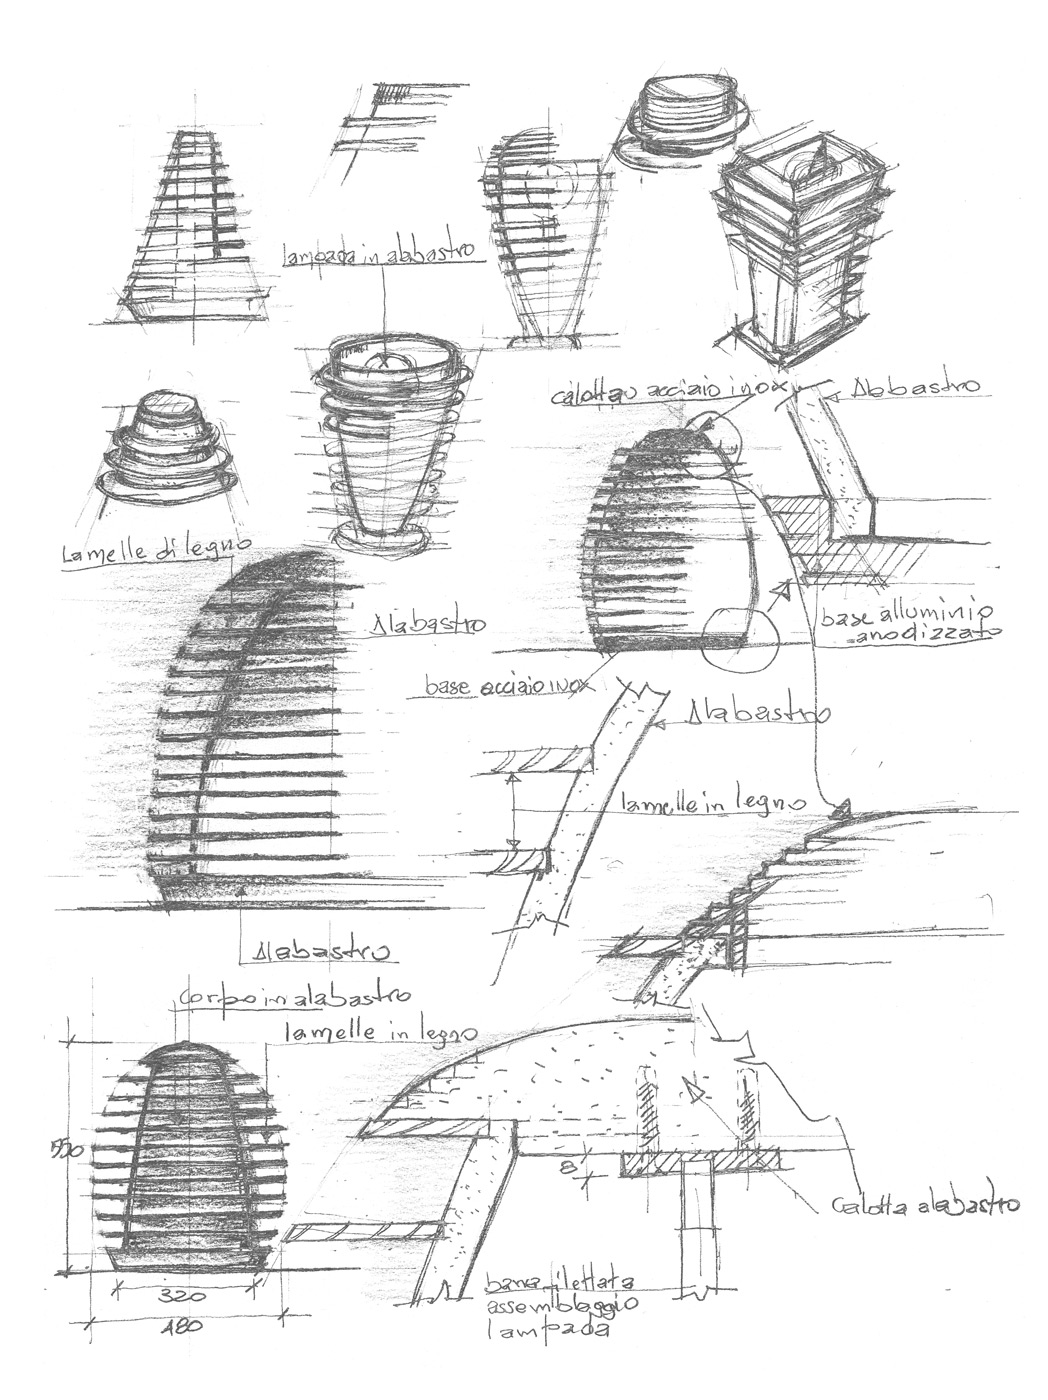 lampada in alabbastro
calottav acciaio inox
Alabbastro
Lamelle di legno
Alabastro
base alluminio
anodizzato
base acciaio inox
Alabastro
lamelle in legno
Alabastro
corpo in alabastro
lamelle in legno
550
8
calotta alabastro
320
480
barra filettata
assemblaggio
lampada